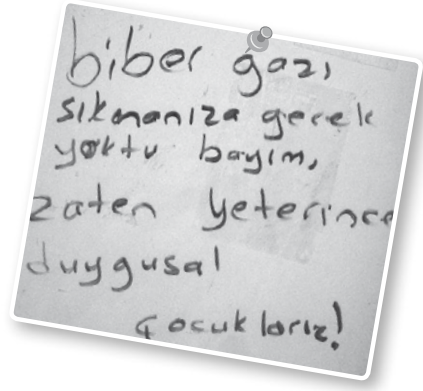 biber gazı
sıkmanıza gerek
yoktu bayım,
zaten yeterince
duygusal
çocuklarız!